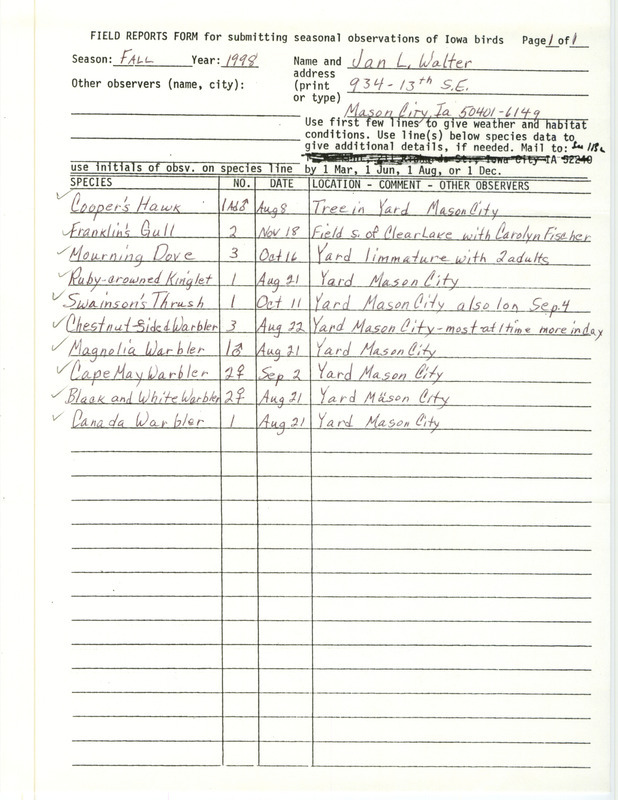 FIELD REPORTS FORM for submitting seasonal observations of Iowa birds Page 1 of 1
Season: FALL Year: 1998
Name and address (print or type)
Jan L. Walter
934-13th S.E.
Mason City, Ia 50401-6149
Other observers (name, city):
Use first few lines to give weather and habitat
conditions. Use line(s) below species data to
give additional details, if needed. Mail to:
St., Iowa City IA 52240
use initials of obsv. on species line by 1 Mar, 1 Jun, 1 Aug, or 1 Dec.
SPECIES NO. DATE LOCATION - COMMENT - OTHER OBSERVERS
✓ Cooper's Hawk 1Ad♂ Aug 8 Tree in Yard Mason City
✓ Franklin's Gull 2 Nov 18 Field s. of Clear Lake with Carolyn Fischer
✓ Mourning Dove 3 Oct 16 Yard 1 immature with 2 adults
✓ Ruby-crowned Kinglet 1 Aug 21 Yard Mason City
✓ Swainson's Thrush 1 Oct 11 Yard Mason City also 1 on Sep 4
✓ Chestnut-Sided Warbler 3 Aug 22 Yard Mason City - most at 1 time more in day
✓ Magnolia Warbler 1♂ Aug 21 Yard Mason City
✓ Cape May Warbler 2♀ Sep 2 Yard Mason City
✓ Black and White Warbler 2♀ Aug 21 Yard Mason City
✓ Canada Warbler 1 Aug 21 Yard Mason City